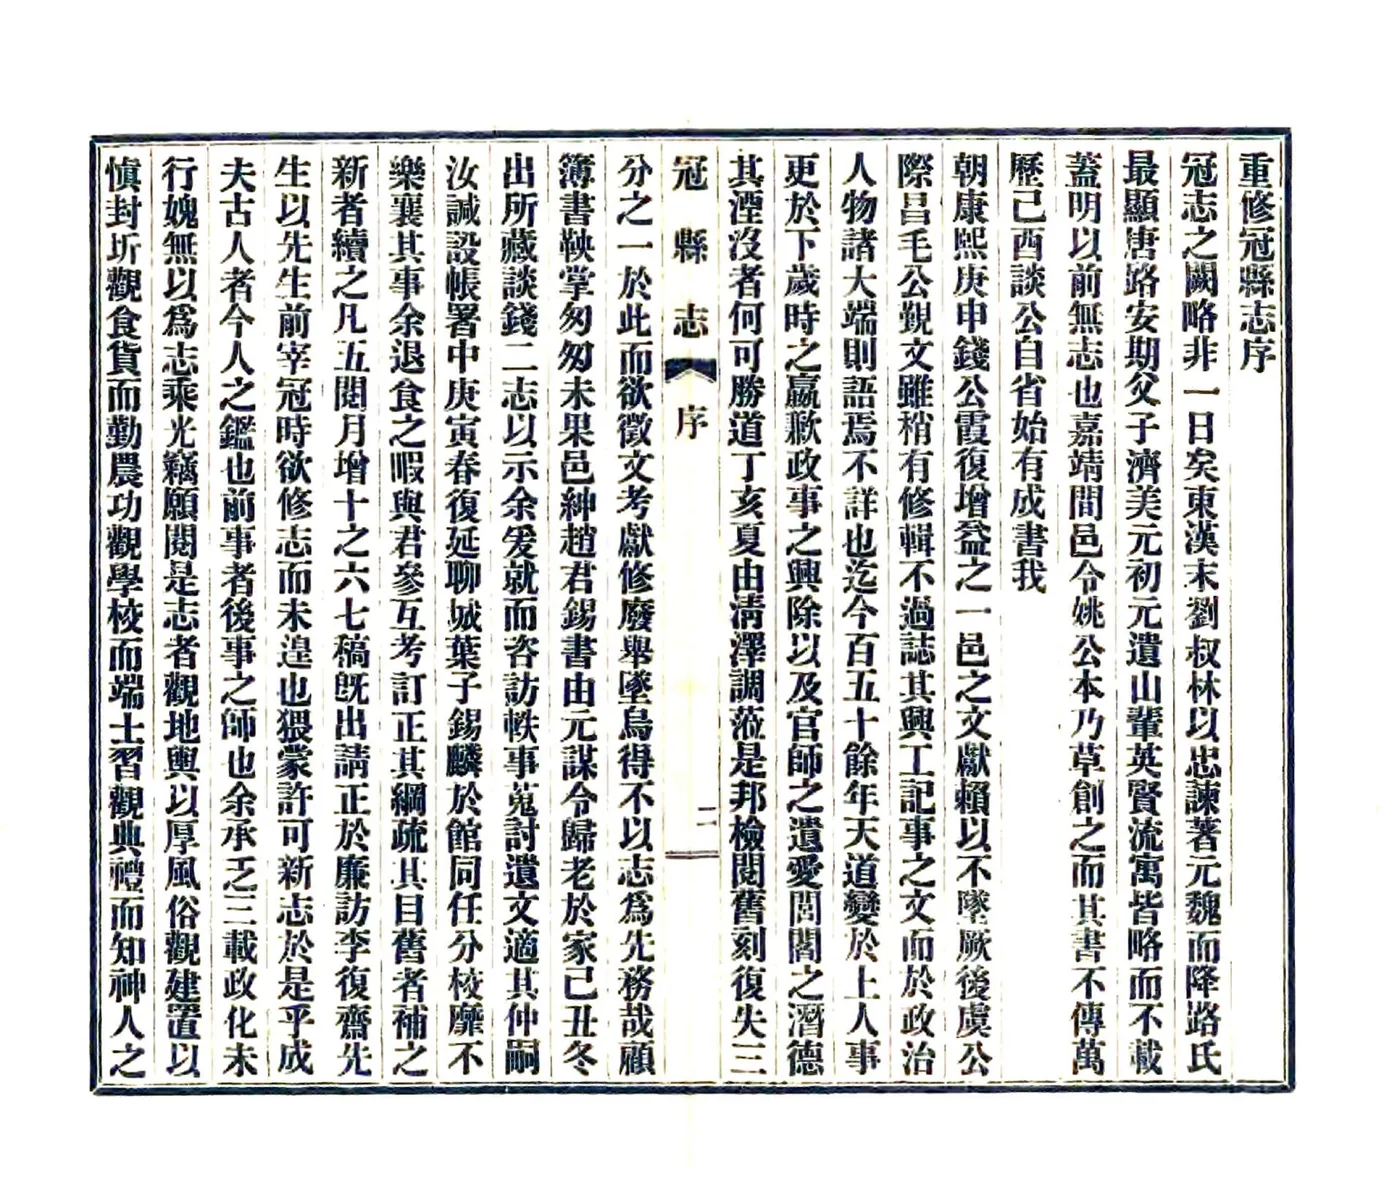 重修冠縣志序
冠志之闕略非一日矣東漢末劉叔林以忠諫著元魏而降路氏
最顯唐路安期父子濟美元初元遺山輩英賢流寓皆略而不載
蓋明以前無志也嘉靖間邑令姚公本乃草創之而其書不傳萬
歷己酉談公自省始有成書我
朝康熙庚申錢公霞復增益之一邑之文獻賴以不墜厥後虞公
際昌毛公覲文雖稍有修輯不過誌其興工記事之文而於政治
人物諸大端則語焉不詳也迄今百五十餘年天道變於上人事
更於下歲時之贏歉政事之興除以及官師之遺愛閭閻之潛德
其湮沒者何可勝道丁亥夏由清澤調蒞是邦檢閱舊刻復失三
冠縣志 序 二
分之一於此而欲徵文考獻修廢舉墜烏得不以志爲先務哉顧
簿書鞅掌匆匆未果邑紳趙君錫書由元謀令歸老於家己丑冬
出所藏談錢二志以示余爰就而咨訪軼事蒐討遺文適其仲嗣
汝諴設帳署中庚寅春復延聊城葉子錫麟於館同任分校靡不
樂襄其事余退食之暇與君參互考訂正其綱疏其目舊者補之
新者續之凡五閱月增十之六七稿旣出請正於廉訪李復齋先
生以先生前宰冠時欲修志而未遑也猥蒙許可新志於是乎成
夫古人者今人之鑑也前事者後事之師也余承乏三載政化未
行媿無以爲志乘光竊願閱是志者觀地輿以厚風俗觀建置以
愼封圻觀食貨而勤農功觀學校而端士習觀典禮而知神人之